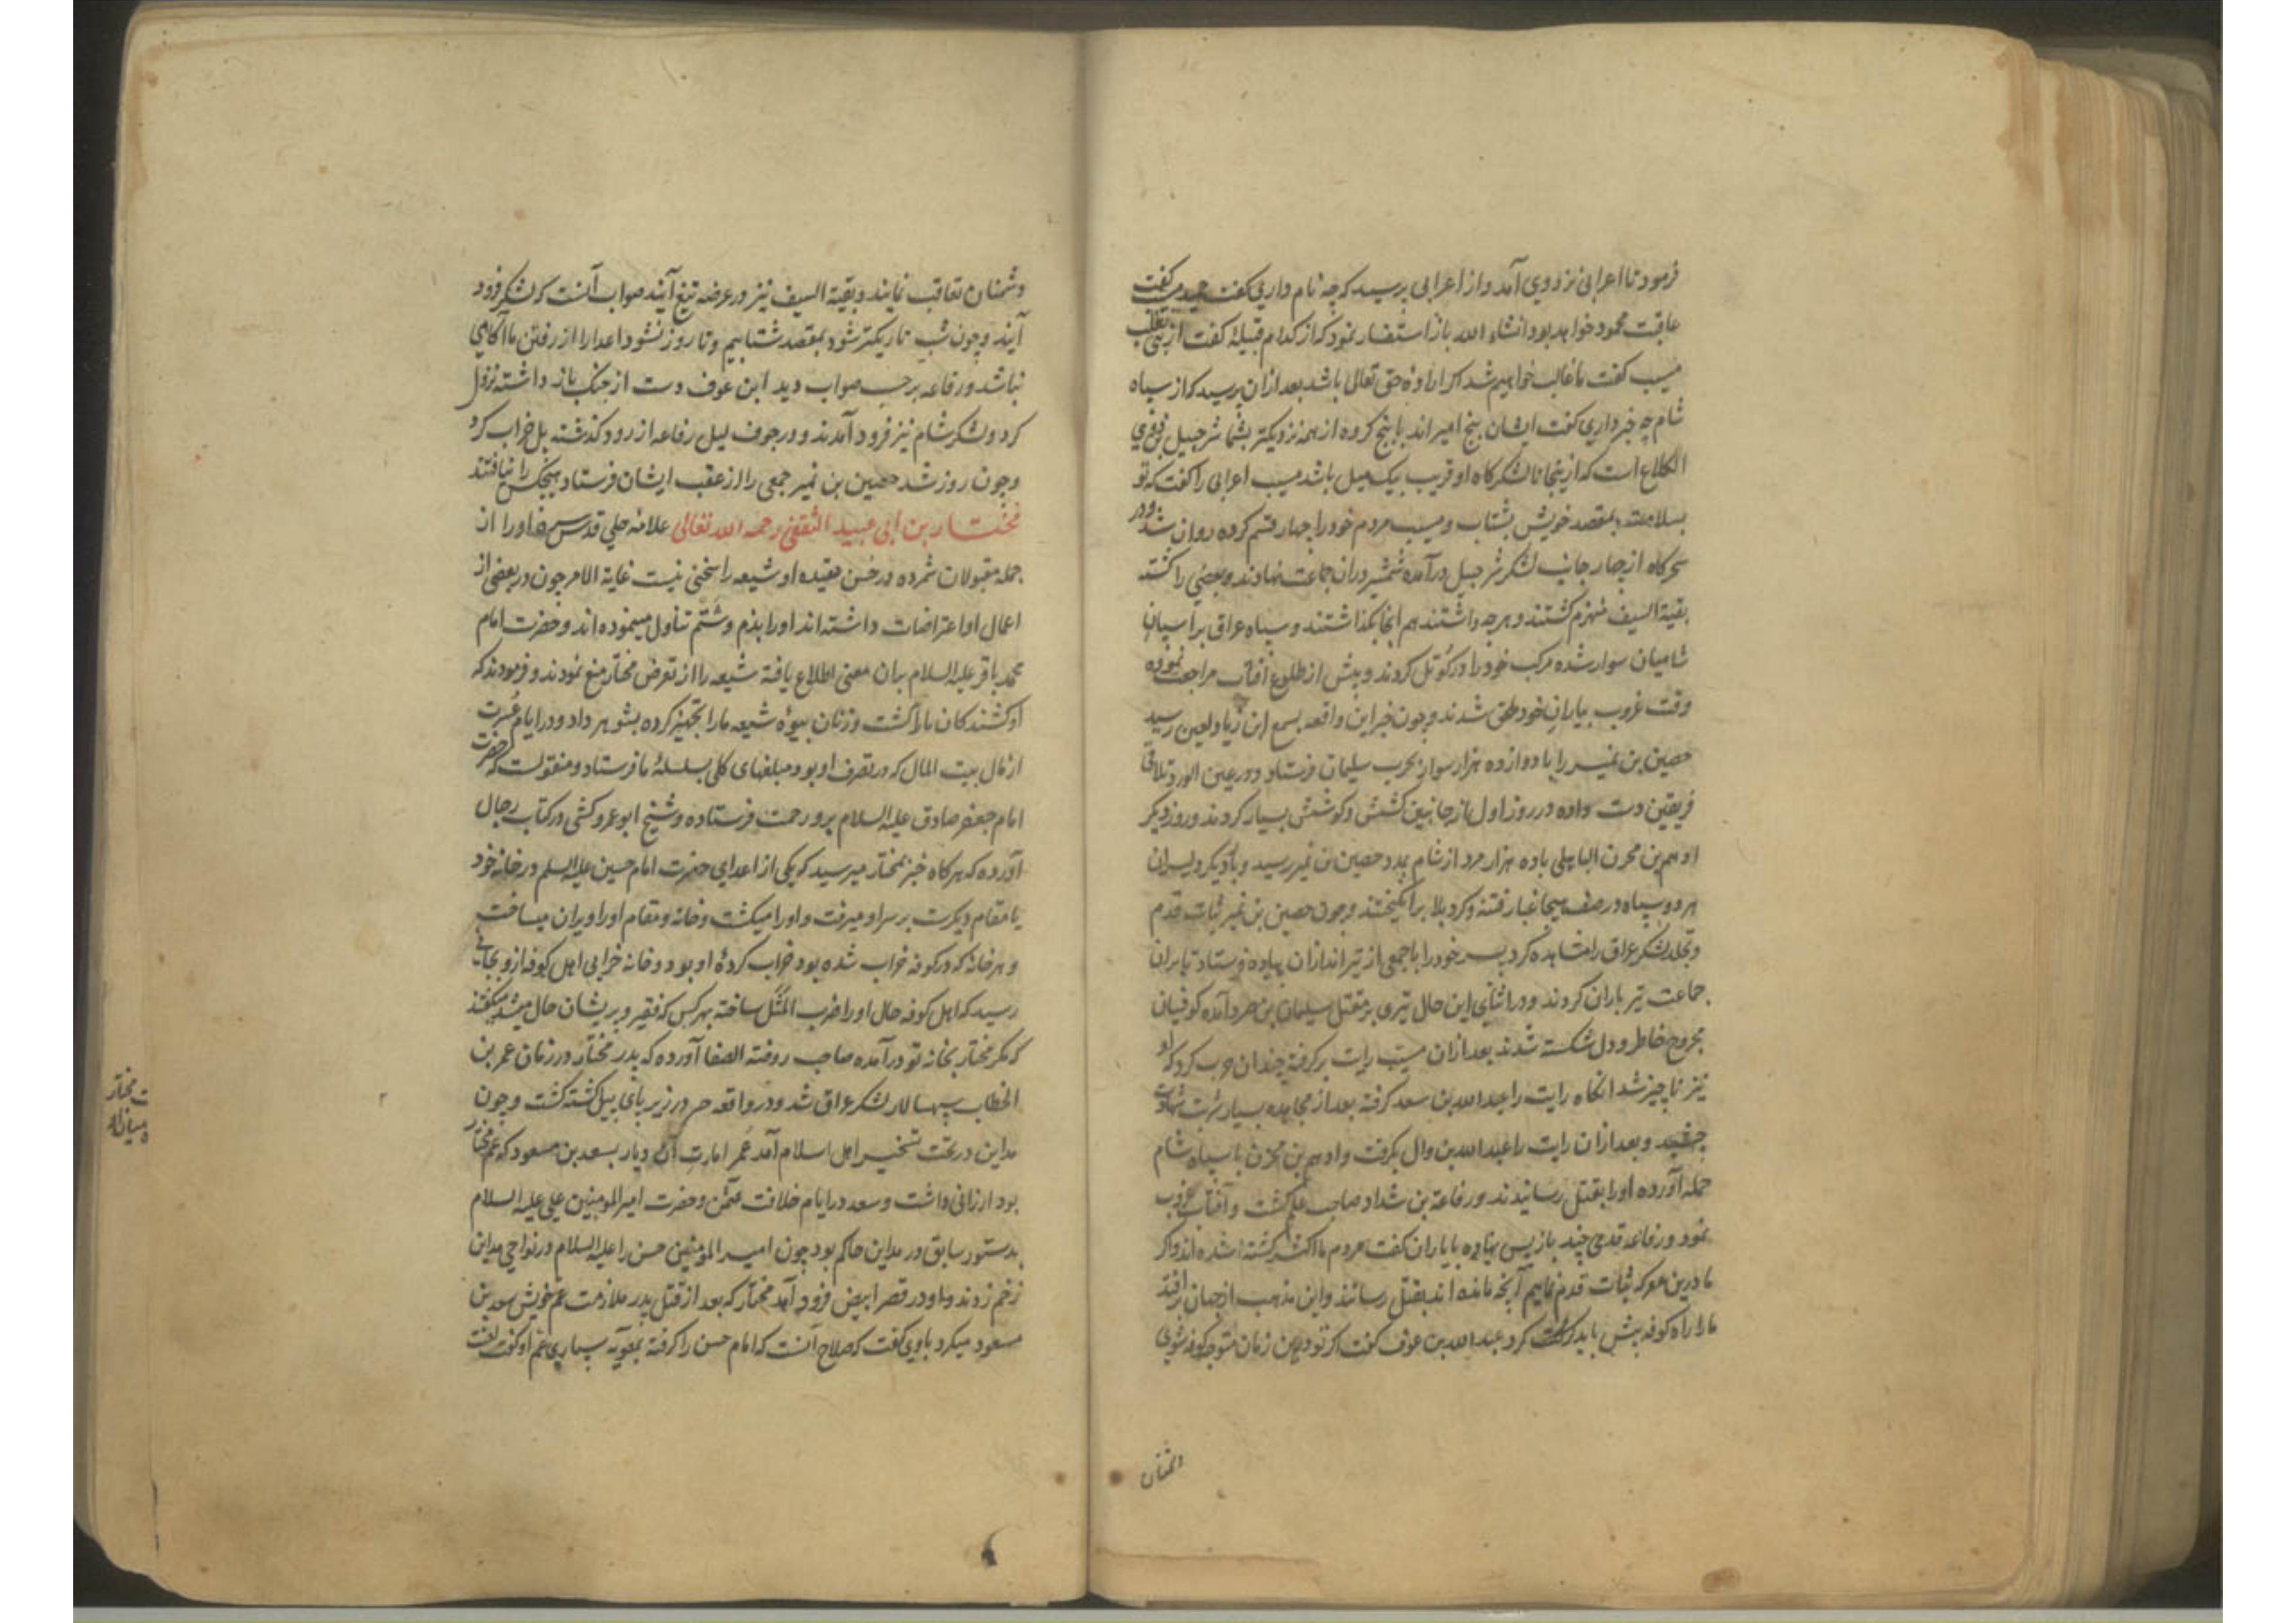 فرمود تا اعرابی نزد وی آمد و از اعرابی پرسید که چه نام داری گفت حمید مسیب گفت
عاقبت محمود خواهد بود انشاء الله باز استفسار نمود که از کدام قبیلهٔ گفت از بنی تغلب
مسیب گفت ما غالب خواهیم شد اگر ارادهٔ حق تعالی باشد بعد از ان پرسید که از سپاه
شام چه خبر داری گفت ایشان پنج امیر اند با پنج کروه از همه نزدیکتر بشما شرجیل بن ذی
الکلاع است که از ینجا تا لشکرکاه او قریب بیک میل باشد مسیب اعرابی را گفت که تو
بسلامت بمقصد خویش بشتاب و مسیب مردم خود را چهار قسم کرده روان شد و در
سحرکاه از چهار جانب لشکر شرجیل در آمده شمشیر دران جماعت نهادند و بعضی را کشته
بقیة السیف منهزم کشتند و هرچه داشتند هم انجا بکذاشتند و سپاه عراق بر اسپان
شامیان سوار شده مرکب خود را در کوتل کردند و پیش از طلوع آفتاب مراجعت نموده
وقت غروب بیاران خود ملحق شدند و چون خبر این واقعه بسمع ابن زیاد لعین رسید
حصین بن نمیر را با دوازده هزار سوار بحرب سلیمان فرستاد و در عین الورد تلاقی
فریقین دست داده در روز اول از جانبین کشش و کوشش بسیار کردند و روز دیکر
ادهم بن محرن الباهلی با ده هزار مرد از شام بمدد حصین بن نمیر رسید و بار دیکر دلیران
هر دو سپاه در صف هیجا غبار فتنه و کرد بلا برانکیختند و چون حصین بن نمیر ثبات قدم
و تجلد لشکر عراق را مشاهده کرد پسر خود را با جمعی از تیر اندازان پیاده فرستاد تا بران
جماعت تیر باران کردند و در اثنای این حال تیری بر مقتل سلیمان بن صرد آمده کوفیان
مجروح خاطر و دل شکسته شدند بعد ازان مسیب رایت برکرفته چندان حرب کرد که او
نیز ناچیز شد انکاه رایت را عبد الله بن سعد کرفته بعد از مجاهده بسیار شربت شهادت
چشید و بعد ازان رایت را عبد الله بن وال بکرفت و ادهم بن محرن با سپاه شام
حمله آورده او را بقتل رسانیدند و رفاعة بن شداد صاحب علم کشت و آفتاب غروب
نمود و رفاعه قدمی چند باز پس نهاده با یاران کفت مردم ما اکثر کشته شده اند و اکر
ما درین معرکه ثبات قدم نماییم آنچه مانده اند بقتل رسانند و این مذهب از جهان بر افتد
ما را راه کوفه پیش باید کرفت کرد عبد الله بن عوف کفت اکر تو درین زمان متوجه کوفه شوی
دشمنان
دشمنان تعاقب نمایند و بقیة السیف نیز در عرضه تیغ آیند صواب آنست که لشکر فرود
آیند و چون شب تاریکتر شود بمقصد شتابیم و تا روز نشود اعدا را از رفتن ما آکاهی
نباشد و رفاعه بر حسب صواب دید ابن عوف دست از جنک باز داشته نزول
کرد و لشکر شام نیز فرود آمدند و در جوف لیل رفاعه از رود کذشته پل خراب کرد
و چون روز شد حصین بن نمیر جمعی را از عقب ایشان فرستاد هیچکس را نیافتند
مختار بن ابی عبید الثقفی رحمه الله تعالی علامه حلی قدس سره او را از
جمله مقبولان شمرده و در حسن عقیده او شیعه را سخنی نیست غایة الامر چون در بعضی از
اعمال او اعتراضات داشته اند او را بذم و شتم تناول مینموده اند و حضرت امام
محمد باقر علیه السلام بران معنی اطلاع یافته شیعه را از تعرض مختار منع نمودند و فرمودند که
او کشندکان ما را کشت و زنان بیوهٔ شیعه ما را تجهیز کرده بشوهر داد و در ایام عسرت
از مال بیت المال که در تصرف او بود مبلغهای کلی بسلسلهٔ ما فرستاد و منقولست که حضرت
امام جعفر صادق علیه السلام برو رحمت فرستاده و شیخ ابو عمرو کشی در کتاب رجال
آورده که هرکاه خبر بمختار میرسید که یکی از اعدای حضرت امام حسین علیه السلم در خانه خود
یا مقام دیکرست بر سر او میرفت و او را میکشت و خانه و مقام او را ویران میساخت
و هر خانه که در کوفه خراب شده بود خراب کردهٔ او بود و خانه خرابی اهل کوفه ازو بجائی
رسید که اهل کوفه حال او را ضرب المثل ساخته بهر کس که فقیر و پریشان حال میشد میکفتند
که مکر مختار بخانه تو در آمده صاحب روضة الصفا آورده که پدر مختار در زمان عمر بن
الخطاب سپهسالار لشکر عراق شد و در واقعه جسر در زیر پای پیل کشته کشت و چون
مداین در تحت تسخیر اهل اسلام آمد عمر امارت آن دیار بسعد بن مسعود که عم مختار
بود ارزانی داشت و سعد در ایام خلافت عثمن و حضرت امیر المومنین علی علیه السلام
بدستور سابق در مداین حاکم بود چون امیر المومنین حسن را علیه السلام در نواحی مداین
زخم زدند و او در قصر ابیض فرود آمد مختار که بعد از قتل پدر ملازمت عم خویش سعد بن
مسعود میکرد باوی کفت که صلاح آنست که امام حسن را کرفته بمعویه سپاری عم او کفت لعنت